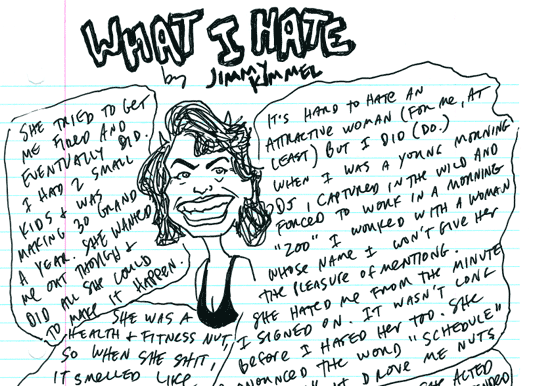 WHAT I HATE
by JIMMY KIMMEL
SHE TRIED TO GET
ME FIRED AND
EVENTUALLY DID.
I HAD 2 SMALL
KIDS & WAS
MAKING 30 GRAND
A YEAR. SHE WANTED
ME OUT THOUGH &
DID ALL SHE COULD
TO MAKE IT HAPPEN.
IT'S HARD TO HATE AN
ATTRACTIVE WOMAN (FOR ME, AT
LEAST) BUT I DID (DO.)
WHEN I WAS A YOUNG MORNING
DJ, CAPTURED IN THE WILD AND
FORCED TO WORK IN A MORNING
"ZOO" I WORKED WITH A WOMAN
WHOSE NAME I WON'T GIVE HER
THE PLEASURE OF MENTIONG.
SHE HATED ME FROM THE MINUTE
I SIGNED ON. IT WASN'T LONG
BEFORE I HATED HER TOO. SHE
THE WORD "SCHEDULE"
DROVE ME NUTS
SHE ACTED
SHE WAS A
HEALTH & FITNESS NUT,
SO WHEN SHE SHIT,
IT SMELLED LIKE